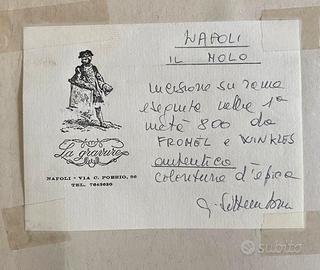 NAPOLI
IL MOLO
incisione su rame
eseguita nella 1a
metà 800 da
FROMEL e WINKLES
autentico
coloritura d'epoca
La gravure
NAPOLI - VIA C. POERIO, 86
TEL. 7642630
subito